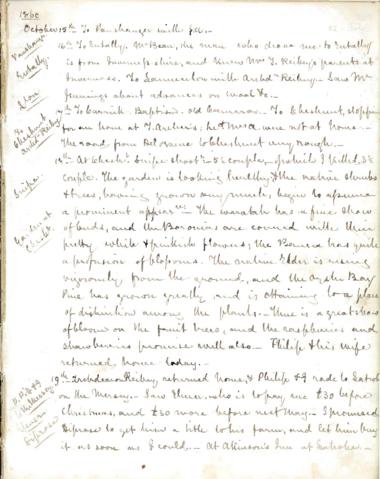 1860
October 15th To Panshanger with Jes.
16th To Entally. Mr Bean, the man who drove me to Entally
is from Inverness shire, and knew Mr T. Reibey's parents at
Inverness. To Launceston with Archd. Reibey. Saw Mr
Jennings about advances on wool &c.
17th To Carrick. Baptism. old Cameron. To Cheshunt, stopping
for an hour at J. Archer's; he & Mrs A. were not at home.
The road from Deloraine to Cheshunt very rough.
18th At Chesht. Snipe shoot 5 couple, of which I killed 3½
couple. The garden is looking healthy & the native shrubs
& trees, having grown very much, begin to assume
a prominent appearce. The waratah has a fine show
of buds, and the Boronias are covered with their
pretty white & pinkish flowers; the Bauera has quite
a profusion of blossoms. The Elder is rising
vigorously from the ground, and the Oyster Bay
Pine has grown greatly and is attaining to a place
of distinction among the plants. There is a great show
of bloom on the fruit trees, and the raspberries and
strawberries promise well also. Philip & his wife
returned home today.
19th Archdeacon Reibey returned home, & Philip & I rode to Latrobe
on the Mersey. Saw who is to pay me £30 before
Christmas, and £30 more before next May. I promised
to get him a title to his farm, and let him buy
it as soon as I could. At Atkinson's Inn at Latrobe.
Panshanger
Entally
To Cheshunt
Archd Reibey
Snipe
Garden at
Chesht.